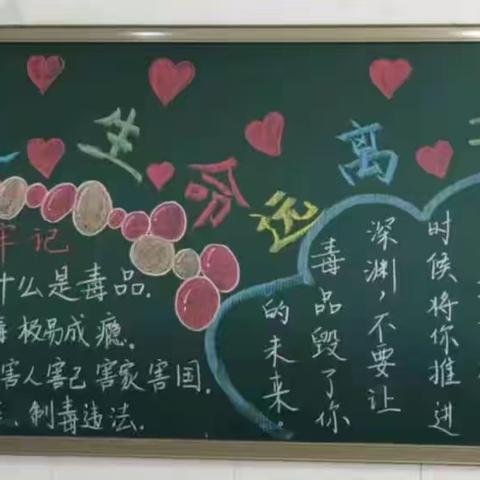 生命远离
牢记
什么是毒品.
极易成瘾.
害人害己害家害国.
、制毒违法.
时候将你推进
深渊，不要让
毒品毁了你
的未来.